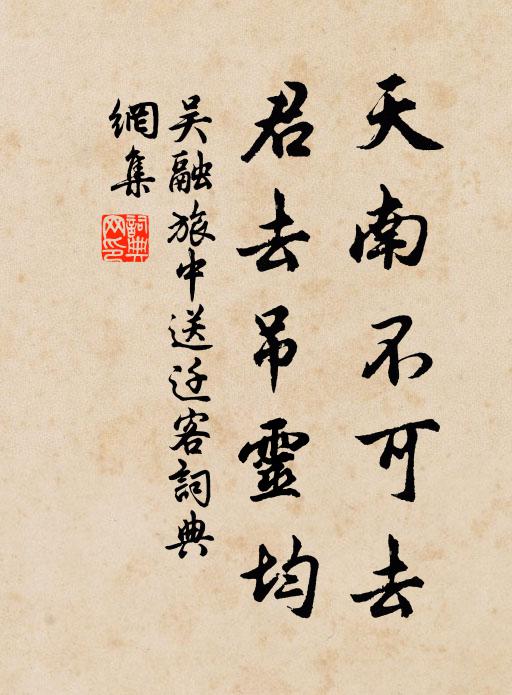 天南不可去
君去吊靈均
吴融旅中送迁客詞典
網集
詞典
网印